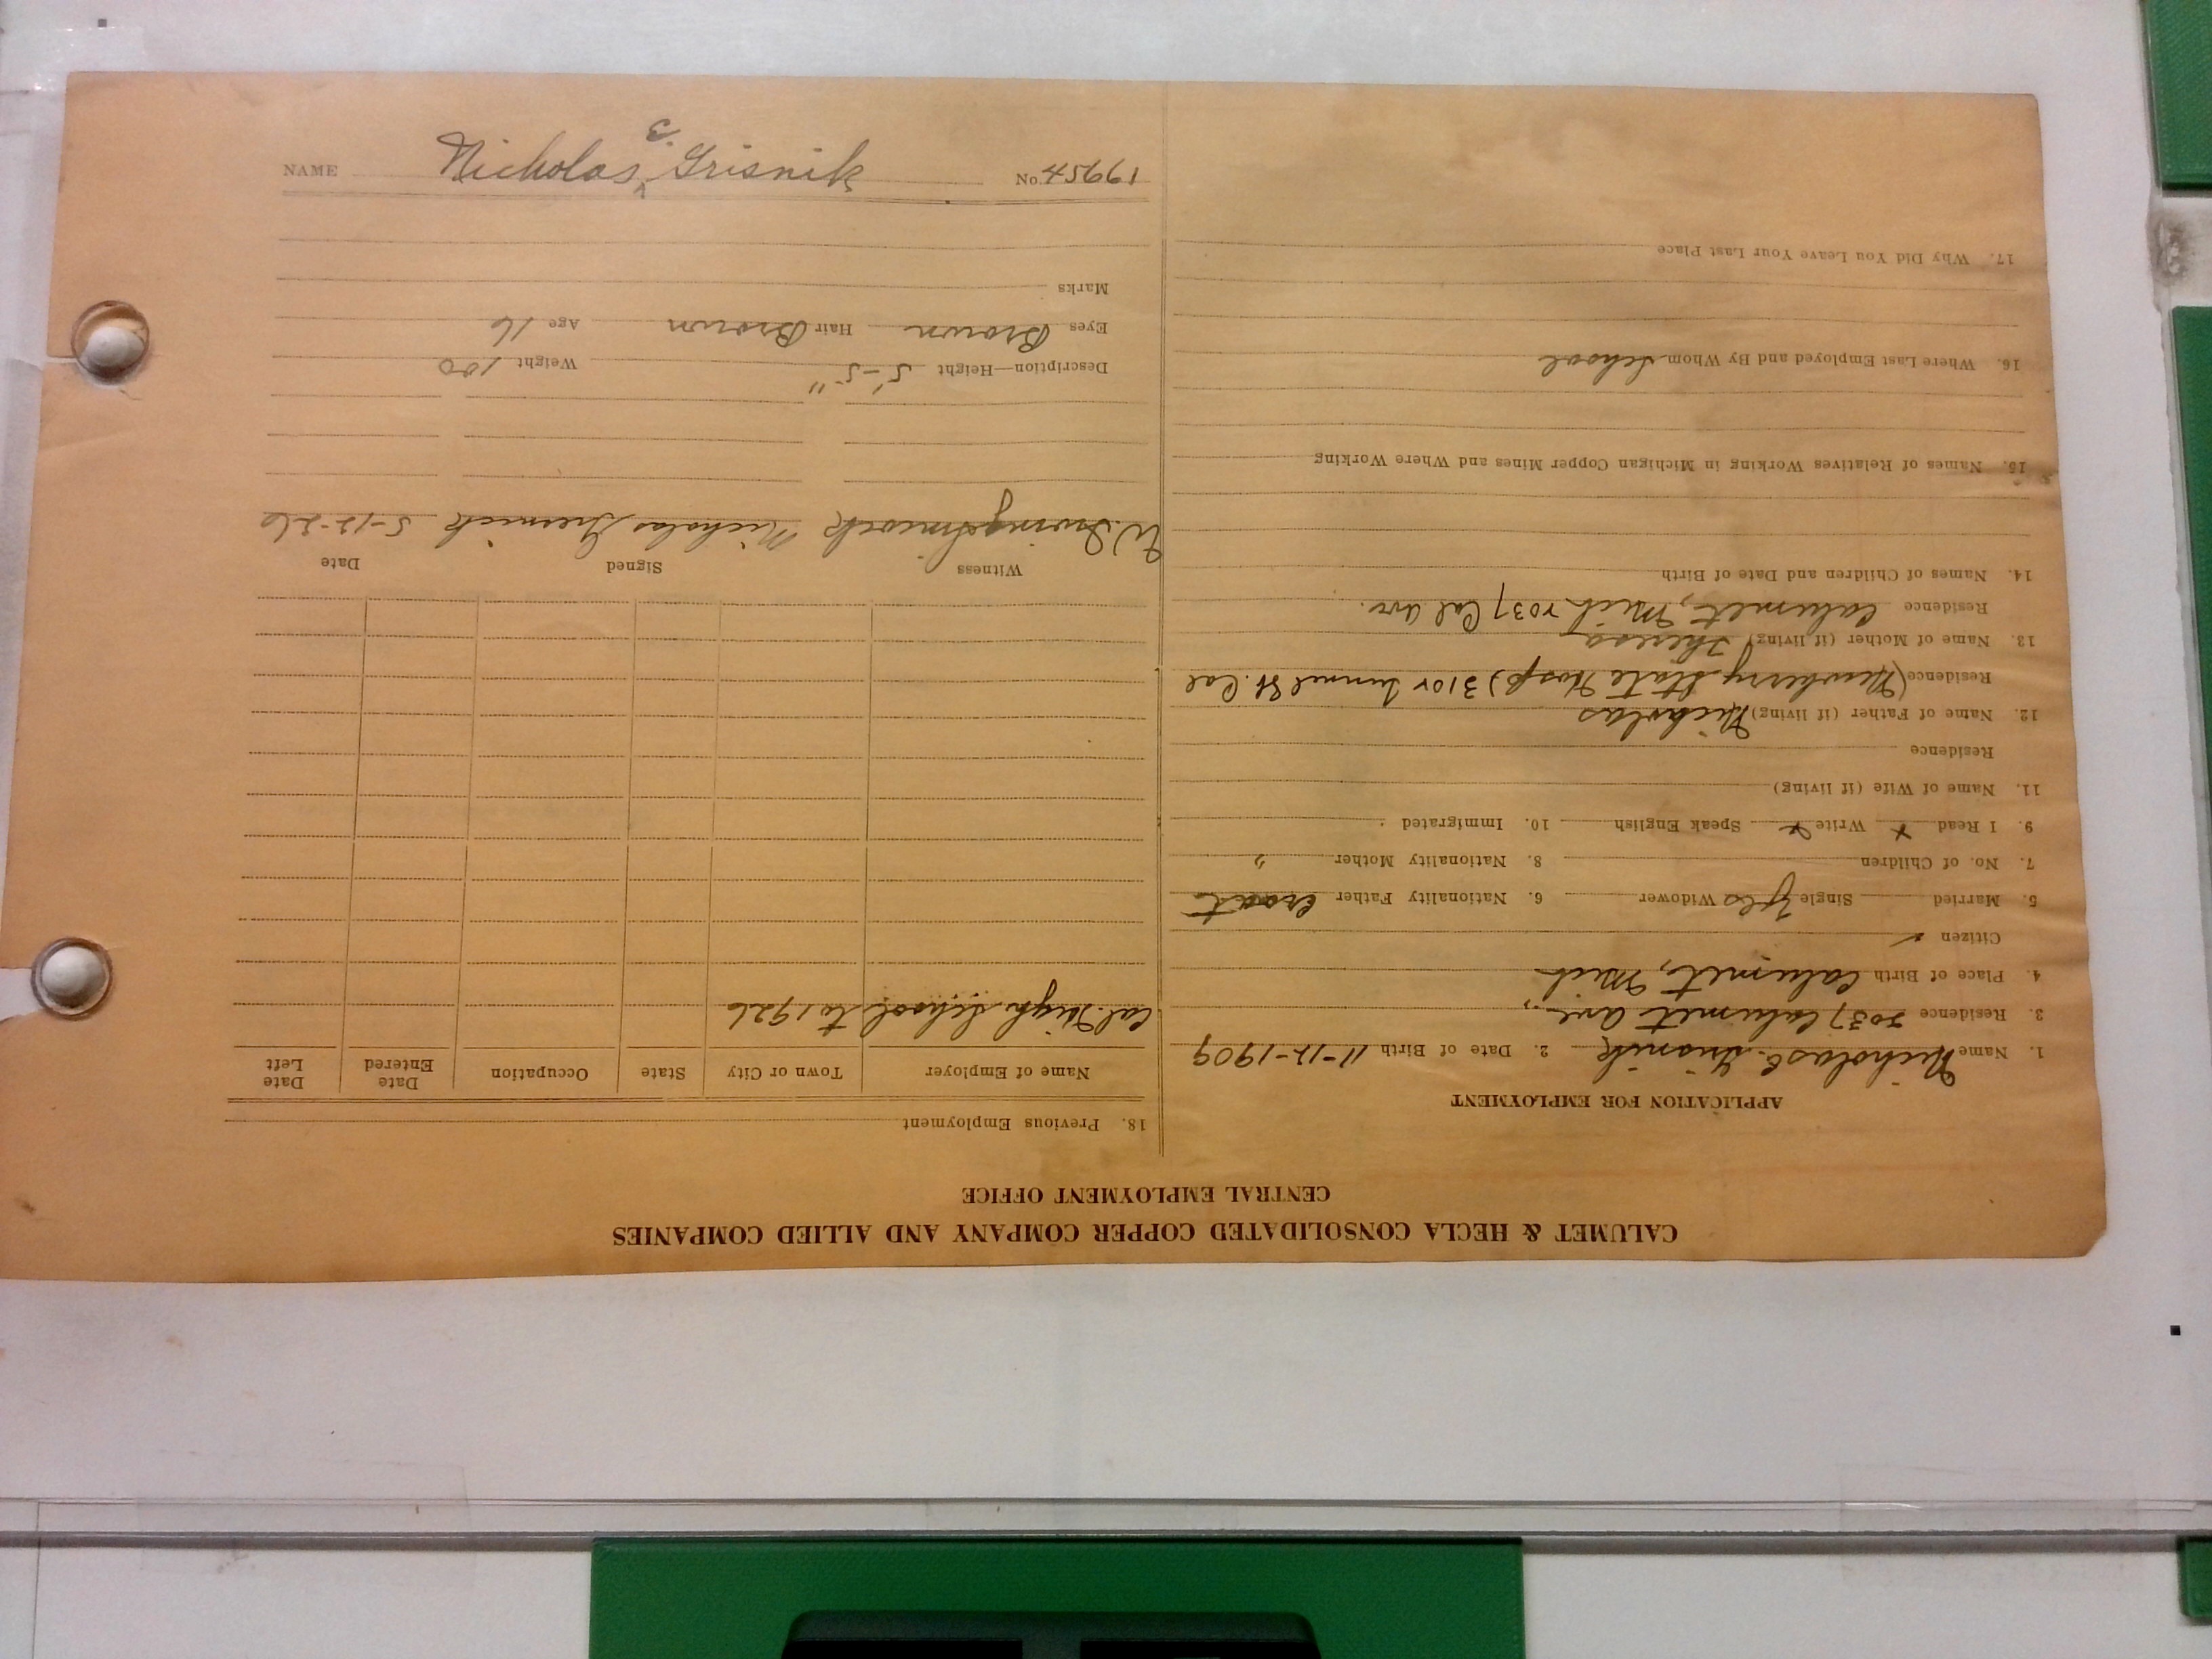 CALUMET & HECLA CONSOLIDATED COPPER COMPANY AND ALLIED COMPANIES
CENTRAL EMPLOYMENT OFFICE
APPLICATION FOR EMPLOYMENT
1. Name Nicholas E. Grisnik 2. Date of Birth 11-12-1909
3. Residence 2037 Calumet Ave.,
4. Place of Birth Calumet, Mich
Citizen ✓
5. Married Single Yes Widower 6. Nationality Father Croat
7. No. of Children 8. Nationality Mother "
9. I Read x Write x Speak English 10. Immigrated
11. Name of Wife (if living)
Residence
12. Name of Father (if living) Nicholas
Residence (Newberry State Hosp) 3102 Tunnel St. Cal
13. Name of Mother (if living) Theresa
Residence Calumet, Mich 2037 Cal Ave.
14. Names of Children and Date of Birth
15. Names of Relatives Working in Michigan Copper Mines and Where Working
16. Where Last Employed and By Whom School
17. Why Did You Leave Your Last Place
18. Previous Employment
Name of Employer Town or City State Occupation Date Entered Date Left
Cal. High School to 1926
Witness Signed Date
W. Nicholas Gresnick 5-12-26
Description—Height 5'-5" Weight 100
Eyes Brown Hair Brown Age 16
Marks
NAME Nicholas E. Grisnik No. 45661